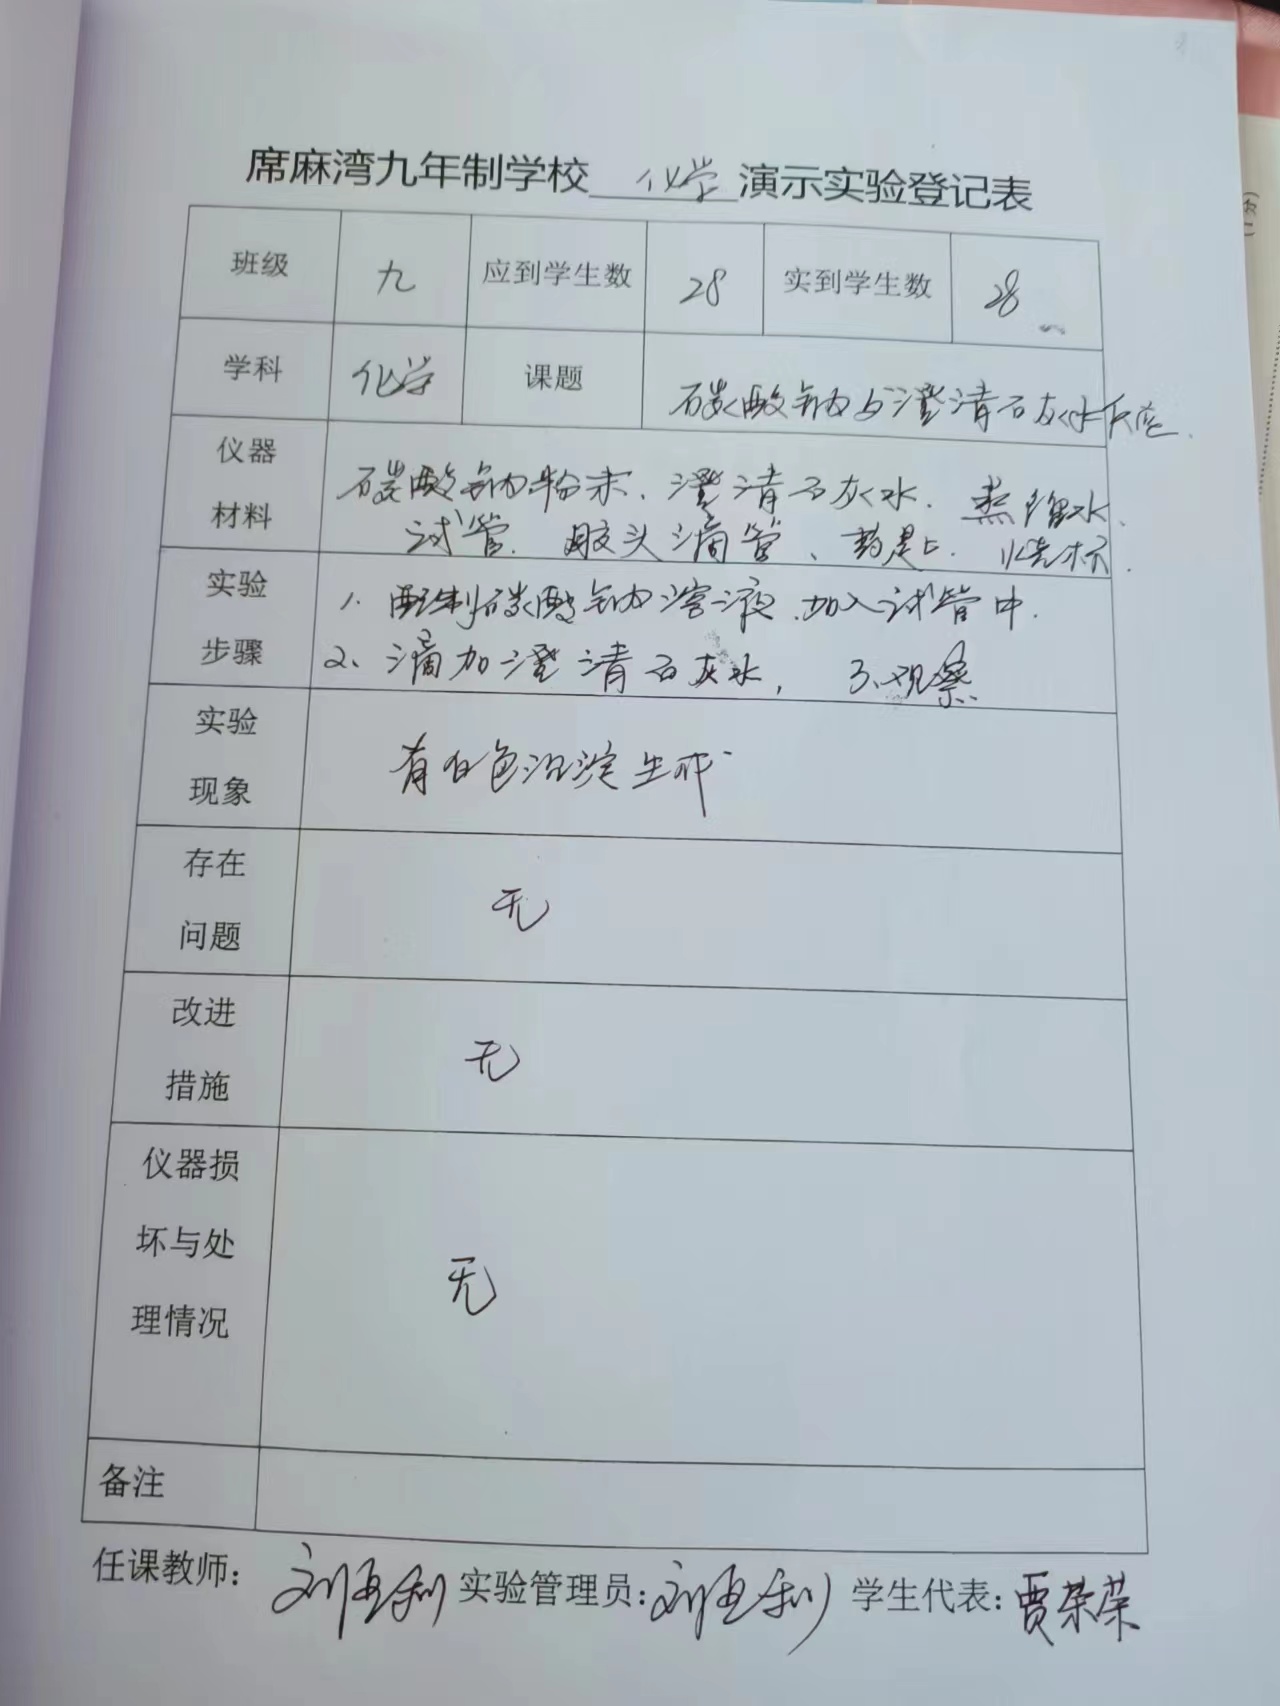 席麻湾九年制学校 化学 演示实验登记表
班级 九 应到学生数 28 实到学生数 28
学科 化学 课题 碳酸钠与澄清石灰水反应.
仪器材料 碳酸钠粉末、澄清石灰水. 蒸馏水.
试管. 胶头滴管、药匙. 烧杯.
实验步骤 1. 配制碳酸钠溶液.加入试管中.
2、滴加澄清石灰水, 3、观察
实验现象 有白色沉淀生成
存在问题 无
改进措施 无
仪器损坏与处理情况 无
备注
任课教师: 实验管理员: 学生代表: 贾荣荣